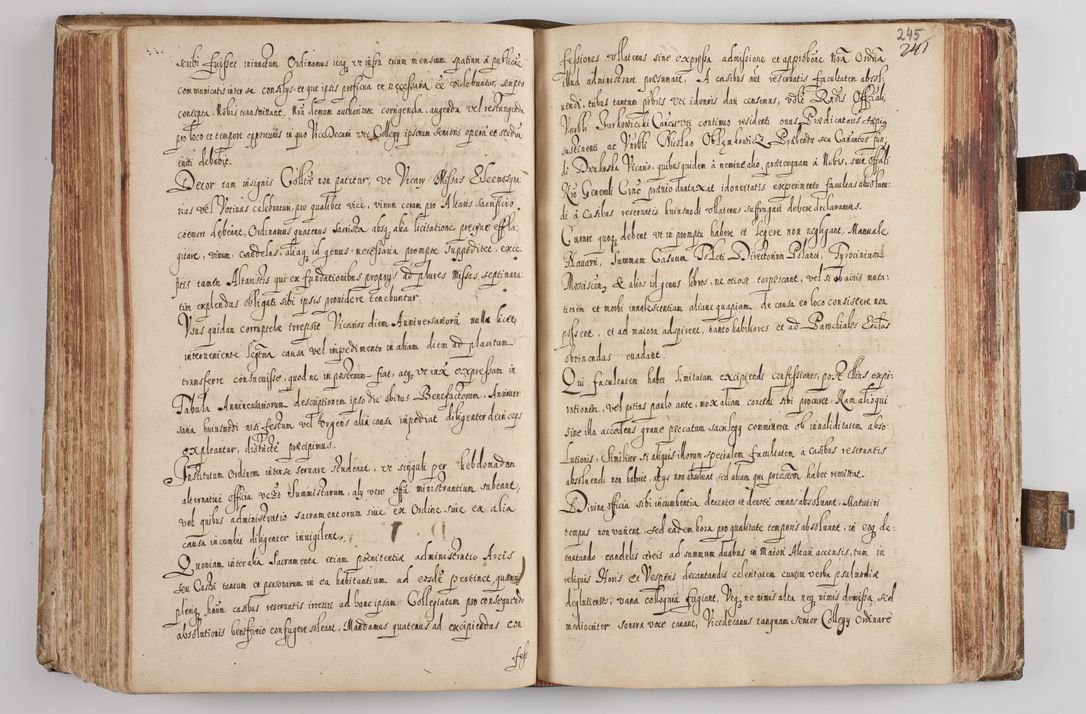 scubi fuisset iniunctum Ordinamus itaq, ut infra trium mensium spatium a publicae
communicatis inter se consilijs, et que ipsis proficua et necessaria esse videbuntur, scripto
concepta, Nobis transmittant, Nra demum authoritate corrigenda, augenda vel restringenda
pro loco et tempore opportuno in quo ViceDecani vti Collegij ipsorum senioris opera et studium
eniti debebit.
Decor tam insignis Collae non patitur, ut Vicarij Missas Eleemosyna-
rias vel Votivas celebraturi, pro qualibet vice, vinum ceram pro Altaris sacrificio
coemere debeant, Ordinamus quatenus Sacrista absq, alia licitatione precque effla-
gitare, vinum, candelas, aliaq, id genus necessaria prompte suppeditet, exce-
ptis tamen Altaristis qui ex fundationibus proprijs ad plures Missas septimana-
tim explendas obligati sibi ipsis providere tenebuntur.
Usus quidam corruptela irrepsit Vicarios diem Anniversariorum nulla licet
interveniente legitima causa vel impedimento in aliam diem ad placitum
transferre consuevisse, quod ne in posterum fiat, atq, ut iuxta expressam in
Tabula Anniversariorum descriptionem ipso die obitus Benefactorum, Anniver-
saria huiusmodi nisi festum vel urgens alia causa impediat diligenter deinceps
expleantur, districte praecipimus.
Institutum Ordinem intense servare studeant, ut singuli per hebdomadam
alternatim officia Summistarum, alij vero offm ministrantium subeant,
vel quibus administratio sacramentorum sive ex Ordine, sive ex alia
causa incumbit diligenter invigilent.
Quoniam inter alia Sacramenta etiam poenitentiae administratio Arcis
seu Castri tantum et personarum in ea habitantium ad eosdem pertinet, quamvis
pleriq, horum casibus reservatis irretiti ad hanc ipsam Collegiatam pro consequendo
absolutionis beneficio confugere soleant, Mandamus quatenus ad excipiendas con
fess
245
241
fessiones ullatenus sine expressa admissione et approbatione Nra Ordria
illud administrare praesumant. A casibus aut reservatis facultatem absol-
vendi, tribus tantum probris vti idoneis dari censemus, vdlt Rndis Officiali,
Vnrbli Jurkowiecki Cancus vti continuo residenti onus Praedicatoris
sustinenti ac Vnrbli Nicolao Obszynkowicz Praebendae seu Canonicatus fun-
di Drukoska Vicario, quibus quidem a nemine alio, praeterquam a Nobis, sive Offali
Nro Generali Crac praevio duntaxat idoneitatis experimento facultas absolven-
di a Casibus reservatis huiusmodi ullatenus suffragari debere declaramus.
Curare quoq, debent ut in promptu habere et legere non negligant, Manuale
Navarri, Summam Casuum Toleti, Directorium Polanci, Tyrocinium
Mosciscin, et alios id genus libros, ne otiose torpescant, vel si ob avitis muta-
tionem et morbi invalescentiam alicunde quapiam de causa eo loco consistere non
possent, et ad maiora adspirent, tanto habiliores et ad Parochiales Ecclas
obtinendas evadant.
Qui facultatem habet limitatam excipiendi confessiones, post illius expi-
rationem, vel potius paulo ante, mox aliam concedi sibi procuret. Nam alioqui
sine illa accedens grave peccatum sacrilegij committeret ob invaliditatem abso-
lutionis, Similiter si aliquis illorum specialem facultatem a casibus reservatis
absolvendi non habuit, aliquos non absolvat sed ad alium qui potestatem habet remittat.
Divina officia sibi incumbentia decenter et devote omnes absolvant. Matutini
tempus non varient, sed eadem hora pro qualitate temporis absolvant, in eoq de-
cantando candelis cereis ad summum duabus in Maiori Altari accensis, tam in
reliquis Horis et Vesperis decantandis celeritatem cursivi verba psalmodiae
deglutientes, vana colloquia fugiant, Vtq, ne nimis alta neq, nimis demissa, sed
mediocriter sonora voce canant, Vicedecanus tanquam senior Collegij ordinare